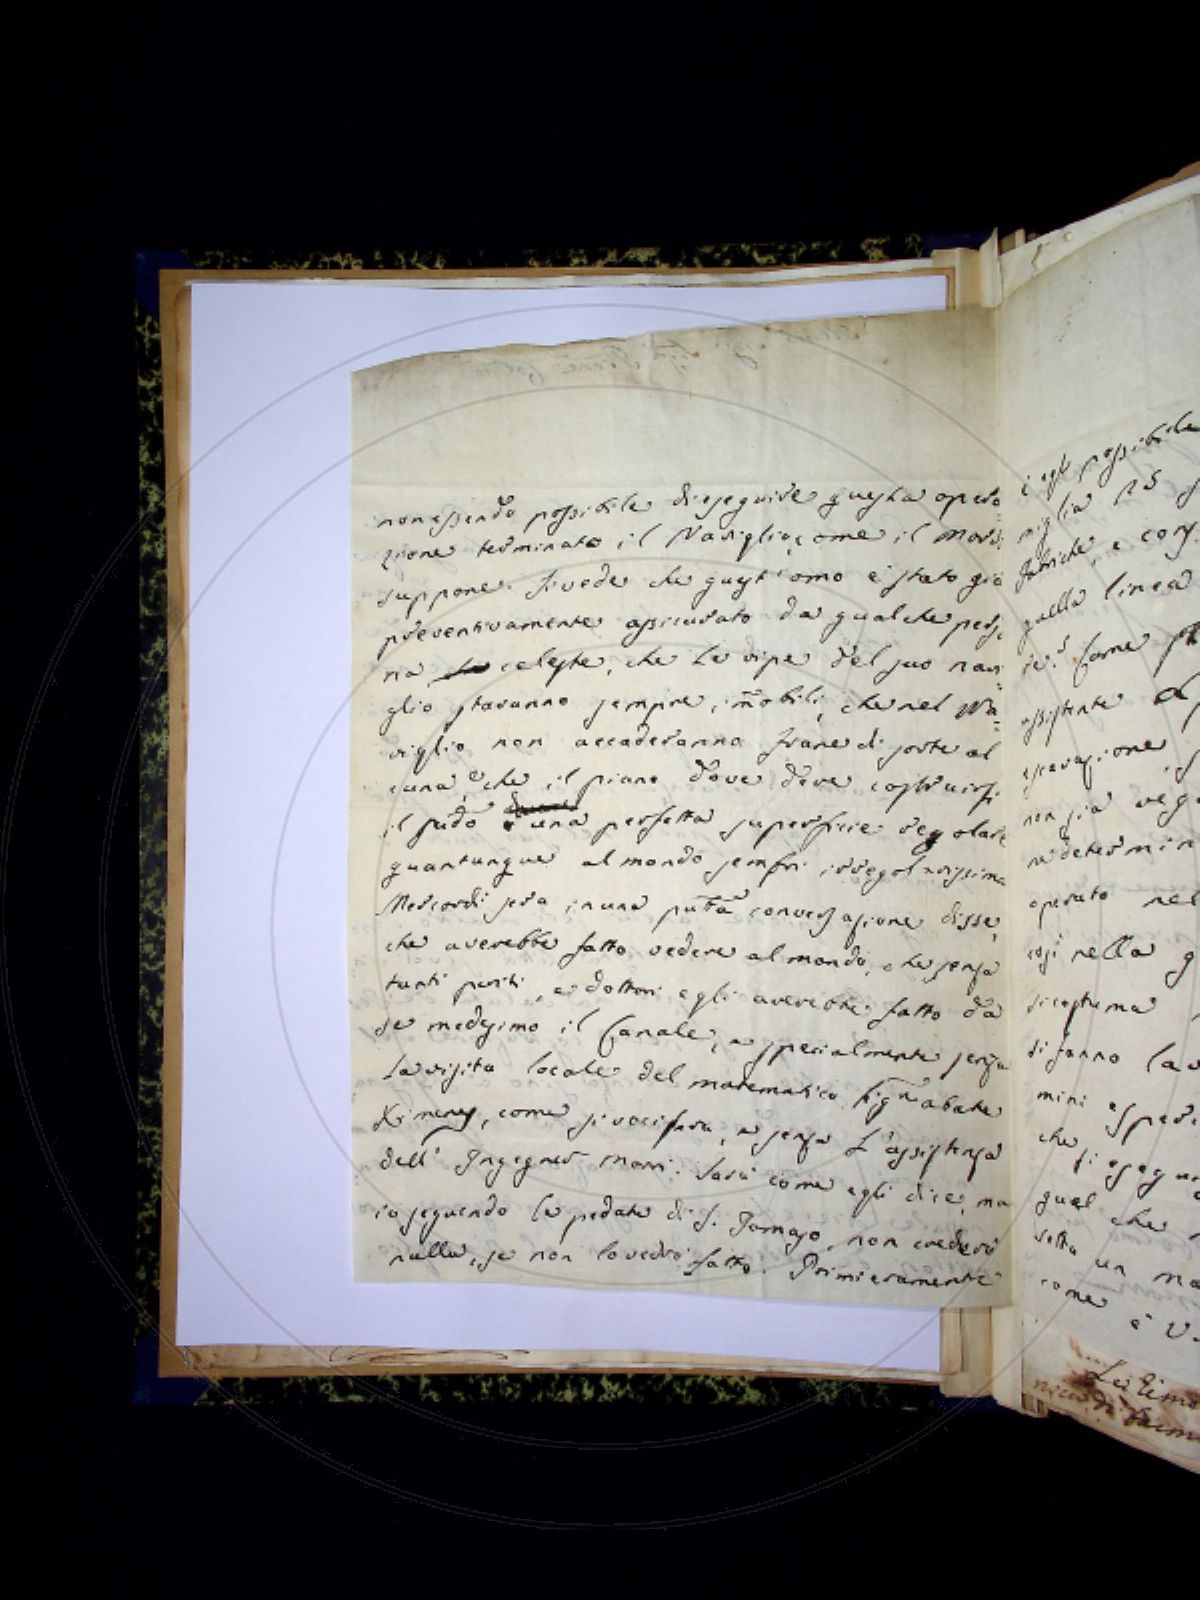 non essendo possibile di eseguire questa opera
zione terminato il Naviglio, come il Mondo
suppone. Si vede che quest'omo è stato già
preventivamente assicurato da qualche perso
na celeste, che le ripe del suo navi
glio staranno sempre im̃obili, che nel Na=
viglio non accaderanno frane di sorte al
cuna, e che il piano dove deve costruirsi
il fudo è una perfetta superficie regolare
quantunque al mondo sembri irregolarissima
Mercordi sera in una putta conversazione disse,
che averebbe fatto vedere al mondo, che senza
tanti periti, e dottori egli averebbe fatto da
se medesimo il Canale, e specialmente senza
la visita locale del matematico Sigr abate
Ximenes, come si vocifera, e senza l'assistenza
dell' Ingegner Mari. Sarà come egli dice, ma
io seguendo le pedate di S. Tomaso, non crederò
nulla, se non lo vedrò fatto. Primieramente
è possibile
niglia
fabriche, e
quella linea
fame
assistente
escavazione,
non sia
determin
operato nel
così nella g
si costuma
si fanno lav
mini espert
che
Si esegu
qual che
sotto un ma
come è